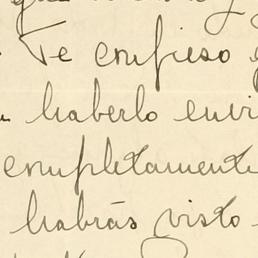 Te confieso
haberlo envi
completamente
habrás visto